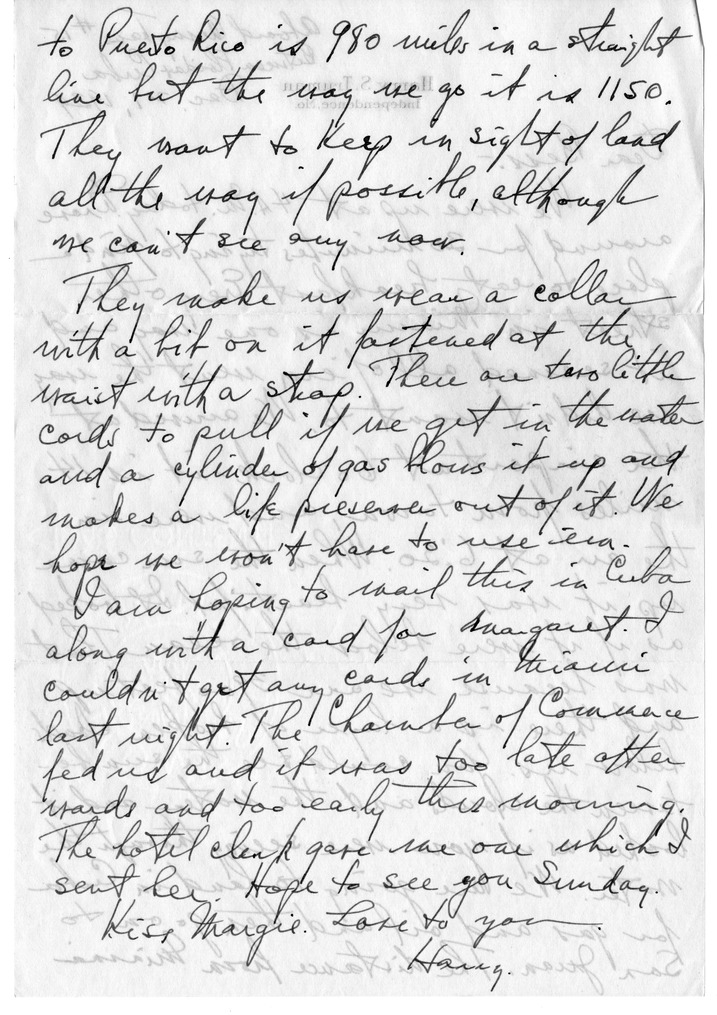 to Puerto Rico is 980 miles in a straight
line but the way we go it is 1150.
They want to keep in sight of land
all the way if possible, although
we can't see any now.
They make us wear a collar
with a bib on it fastened at the
waist with a strap. There are two little
cords to pull if we get in the water
and a cylinder of gas blows it up and
makes a life preserver out of it. We
hope we won't have to use 'em.
I am hoping to mail this in Cuba
along with a card for Margaret. I
couldn't get any cards in Miami
last night. The Chamber of Commerce
fed us and it was too late after
wards and too early this morning.
The hotel clerk gave me one which I
sent her. Hope to see you Sunday.
Kiss Margie. Love to you.
Harry.